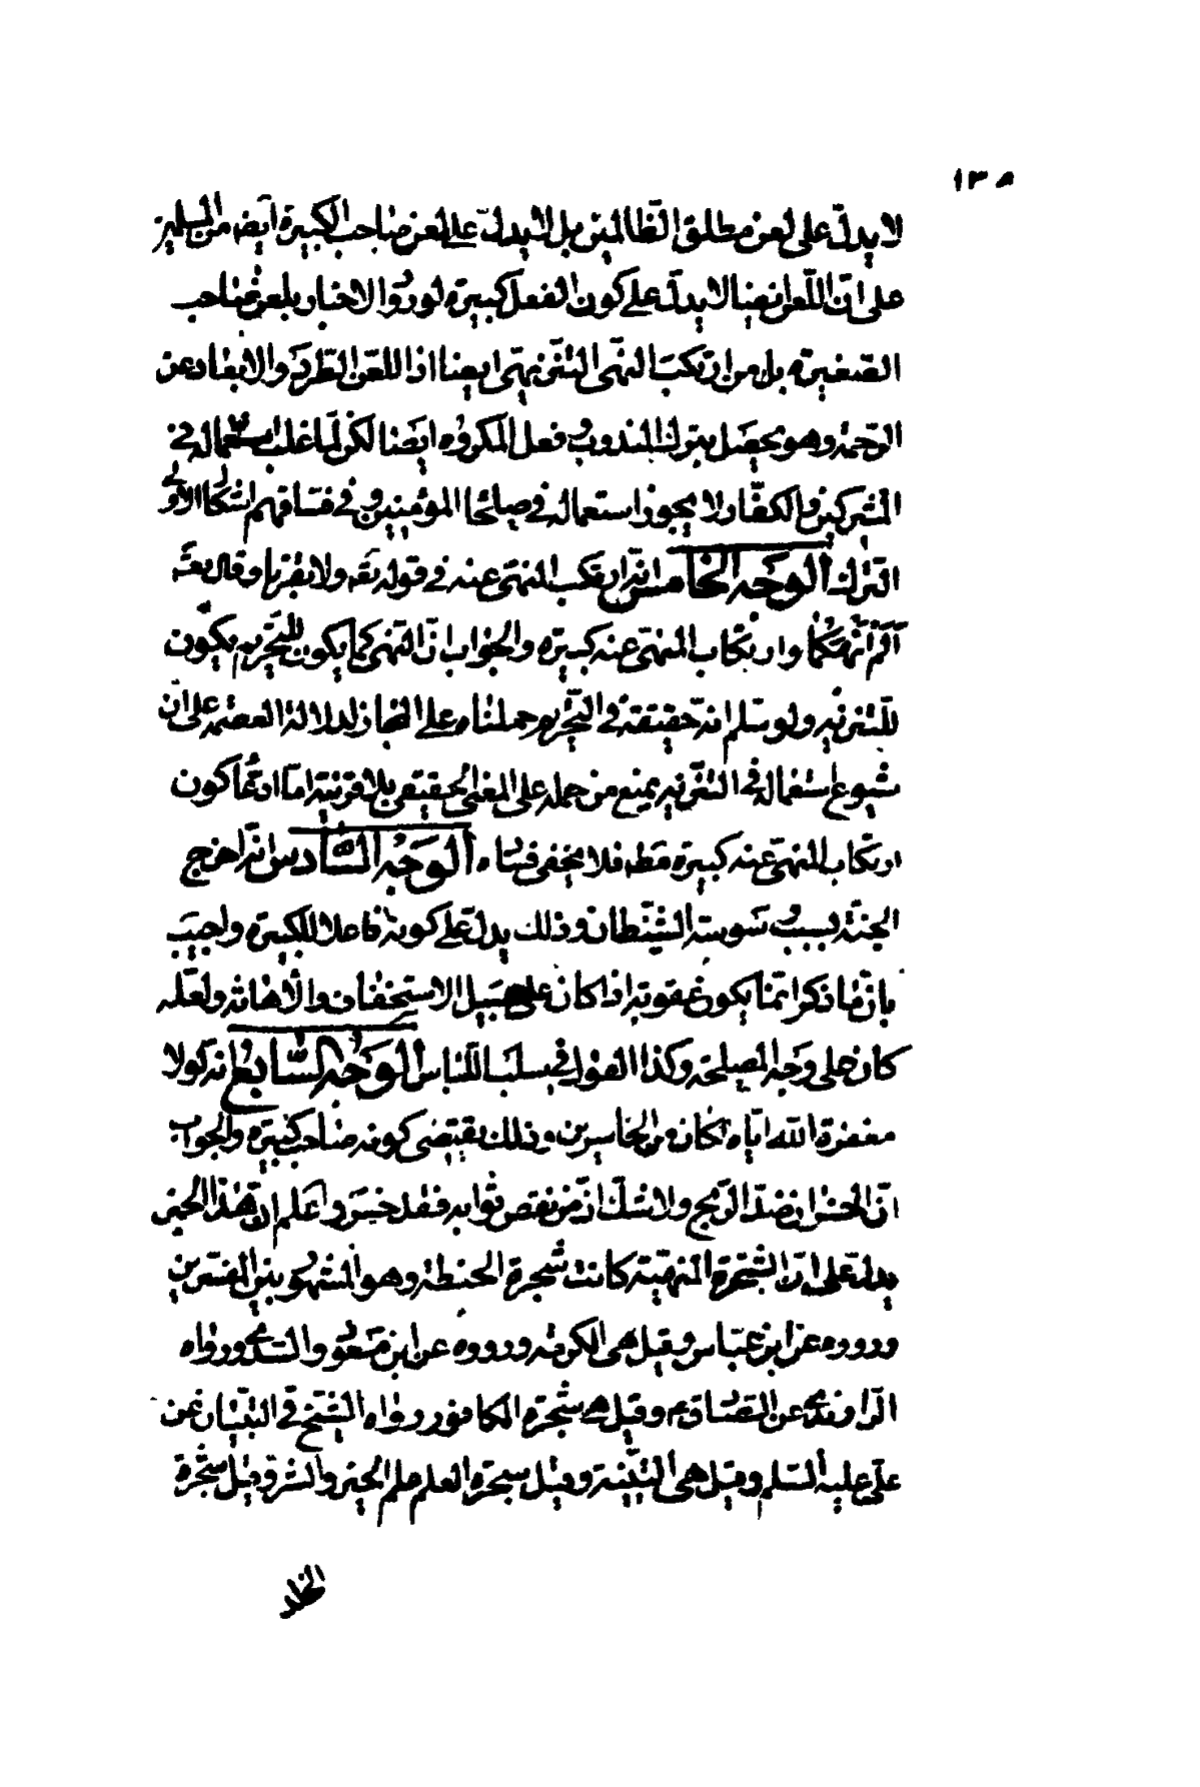 ١٣٨
لا يدلّ على لعن مطلق الظالمين بل لا يدلّ على لعن صاحب الكبيرة ايضا من المسلمين
على انّ اللّعن ايضا لا يدلّ على كون الفعل كبيرة لورود الاخبار بلعن صاحب
الصغيرة بل من ارتكب النهى التنزيهى ايضا اذ اللعن الطّرد والابعاد عن
الرّحمة وهو يحصل بترك المندوب وفعل المكروه ايضا لكن لمّا غلب استعماله فى
المشركين والكفّار لا يجوز استعماله فى صلحاء المؤمنين وفى فسّاقهم اشكال الاولى
الترك الوجه الخامس انّه ارتكب المنهى عنه فى قوله تعه ولا تقربا وقال تعه
ألم أنهكما وارتكاب المنهىّ عنه كبيرة والجواب انّ النهى كما يكون للتحريم يكون
للتنزيه ولو سلم انه حقيقة فى التحريم حملناه على المجاز لدلالة العصمة على انّ
شيوع استعماله فى التنزيه يمنع من حمله على المعنى الحقيقى بلا قرينة امّا ادعاء كون
ارتكاب المنهىّ عنه كبيرة مطه فلا يخفى فساده الوجه السّادس انّه اخرج
الجنّة بسبب تسويته الشّيطان وذلك يدلّ على كونه فاعلا للكبيرة واجيب
بانّ ما ذكر انّما يكون عقوبة اذا كان على سبيل الاستخفاف والاهانة ولعلّه
كان على وجه المصلحة وكذا القول فى سلب اللّباس الوجه السّابع انه لولا
مغفرة الله ايّاه لكان من الخاسرين وذلك يقتضى كونه صاحب كبيرة والجواب
انّ الخسران ضدّ الرّبح ولا شكّ انّ من نقص ثوابه فقد خسر واعلم انّ هذا الخبر
يدلّ على انّ الشّجرة المنهيّة كانت شجرة الحنطة وهو المشهور بين المفسّرين
ورووه عن ابن عبّاس وقيل هى الكرمة ورووه عن ابن مسعود والسّدى ورواه
الرّاوندى عن الصّادق م وقيل هى شجرة الكافور رواه الشيخ فى التّبيان عن
علىّ عليه السّلم وقيل هى التّينة وقيل شجرة العلم علم الخير والشر وقيل شجرة
الخلد